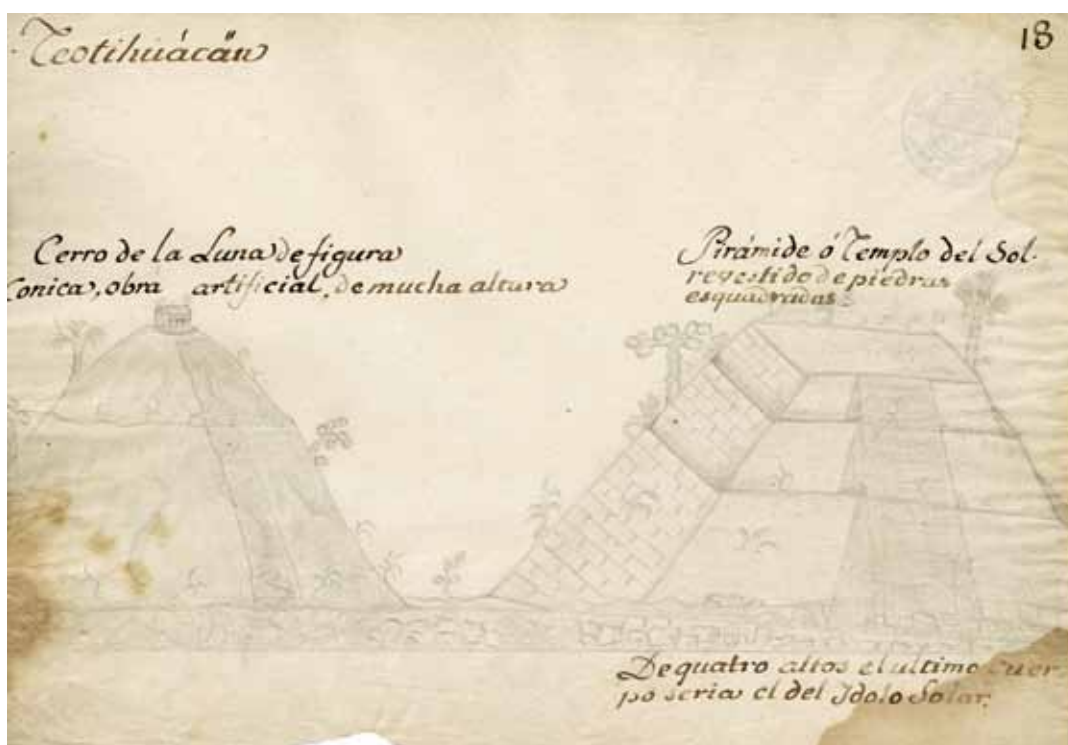 Teotihuácán
18
Cerro de la Luna de figura
Conica, obra artificial, de mucha altura
Pirámide ó Templo del Sol.
revestido de piedras
esquadradas
De quatro altos el ultimo cuer-
po seria el del Jdolo Solar.